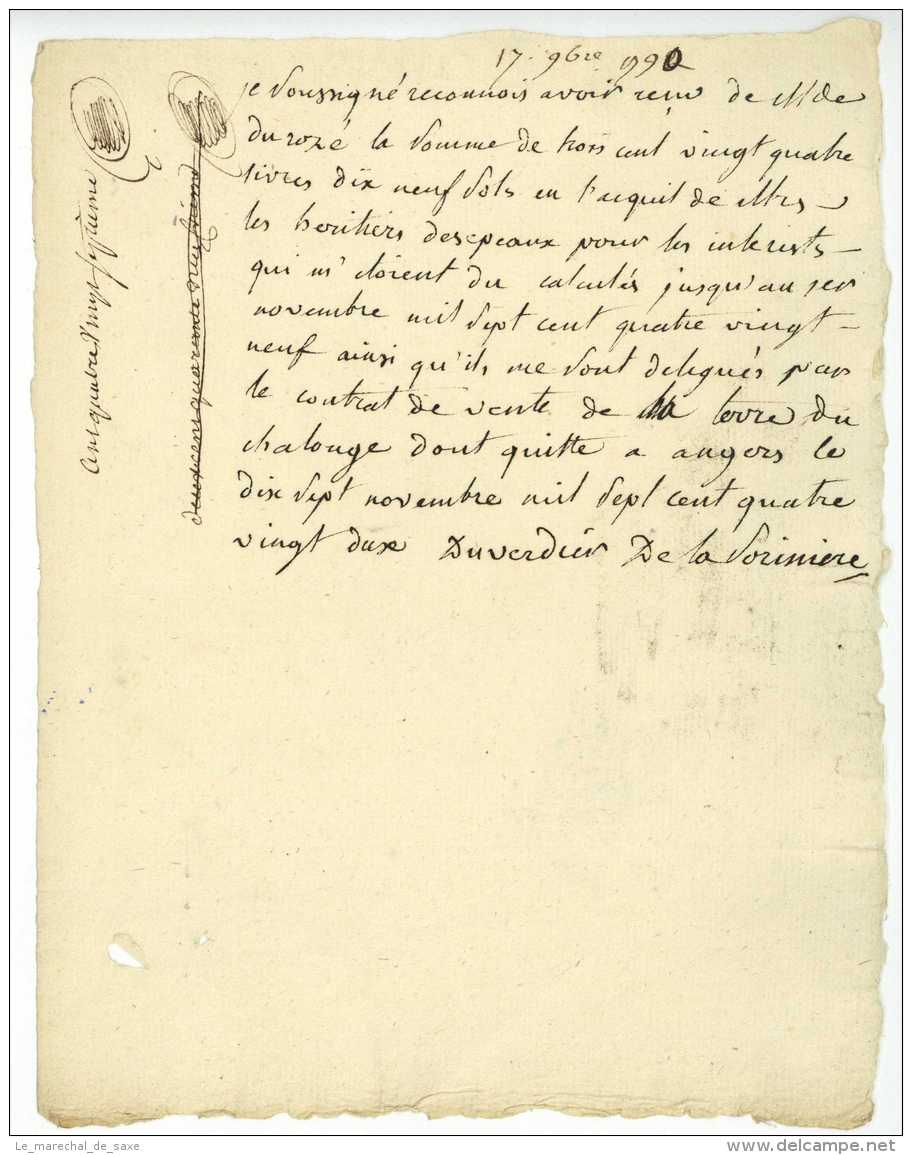 17. 9bre. 1790
je soussigné reconnois avoir recu de M de
du rozé la somme de trois cent vingt quatre
livres dix neuf sols en l'acquit de Mrs
les heritiers desepeaux pour les interests
qui m'etoient du calculés jusqu'au 1er
novembre mil sept cent quatre vingt
neuf ainsi qu'ils me sont delegués par
le contrat de vente de la terre du
chalonge dont quitte a angers le
dix sept novembre mil sept cent quatre
vingt dixe Duverdier De la Soriniere
cent quatre vingt septieme
deux cens quarante neufvieme
Le_marechal_de_saxe
www.delcampe.net